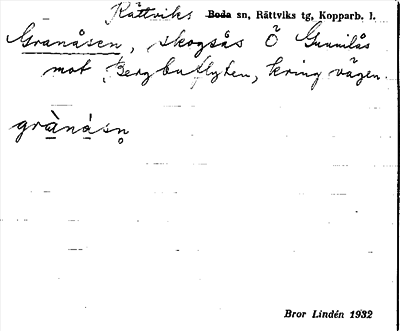 Rättviks Boda sn, Rättviks tg, Kopparb. l.
Granåsen, skogsås Ö Gunnilås
mot Bergbutflyten, kring vägen.
grànásn̥
Bror Lindén 1932